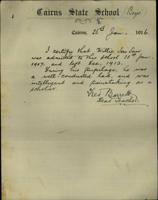 Cairns State School (Boys)
Cairns, 25th Jan. 1916
I certify that Willie See Sin
was admitted to this school 10th Jan.
1907 and left Dec. 1913.
During his pupilage, he was
a well conducted lad, and was
intelligent and painstaking as a
scholar.
Fred Barrett
Head Teacher.